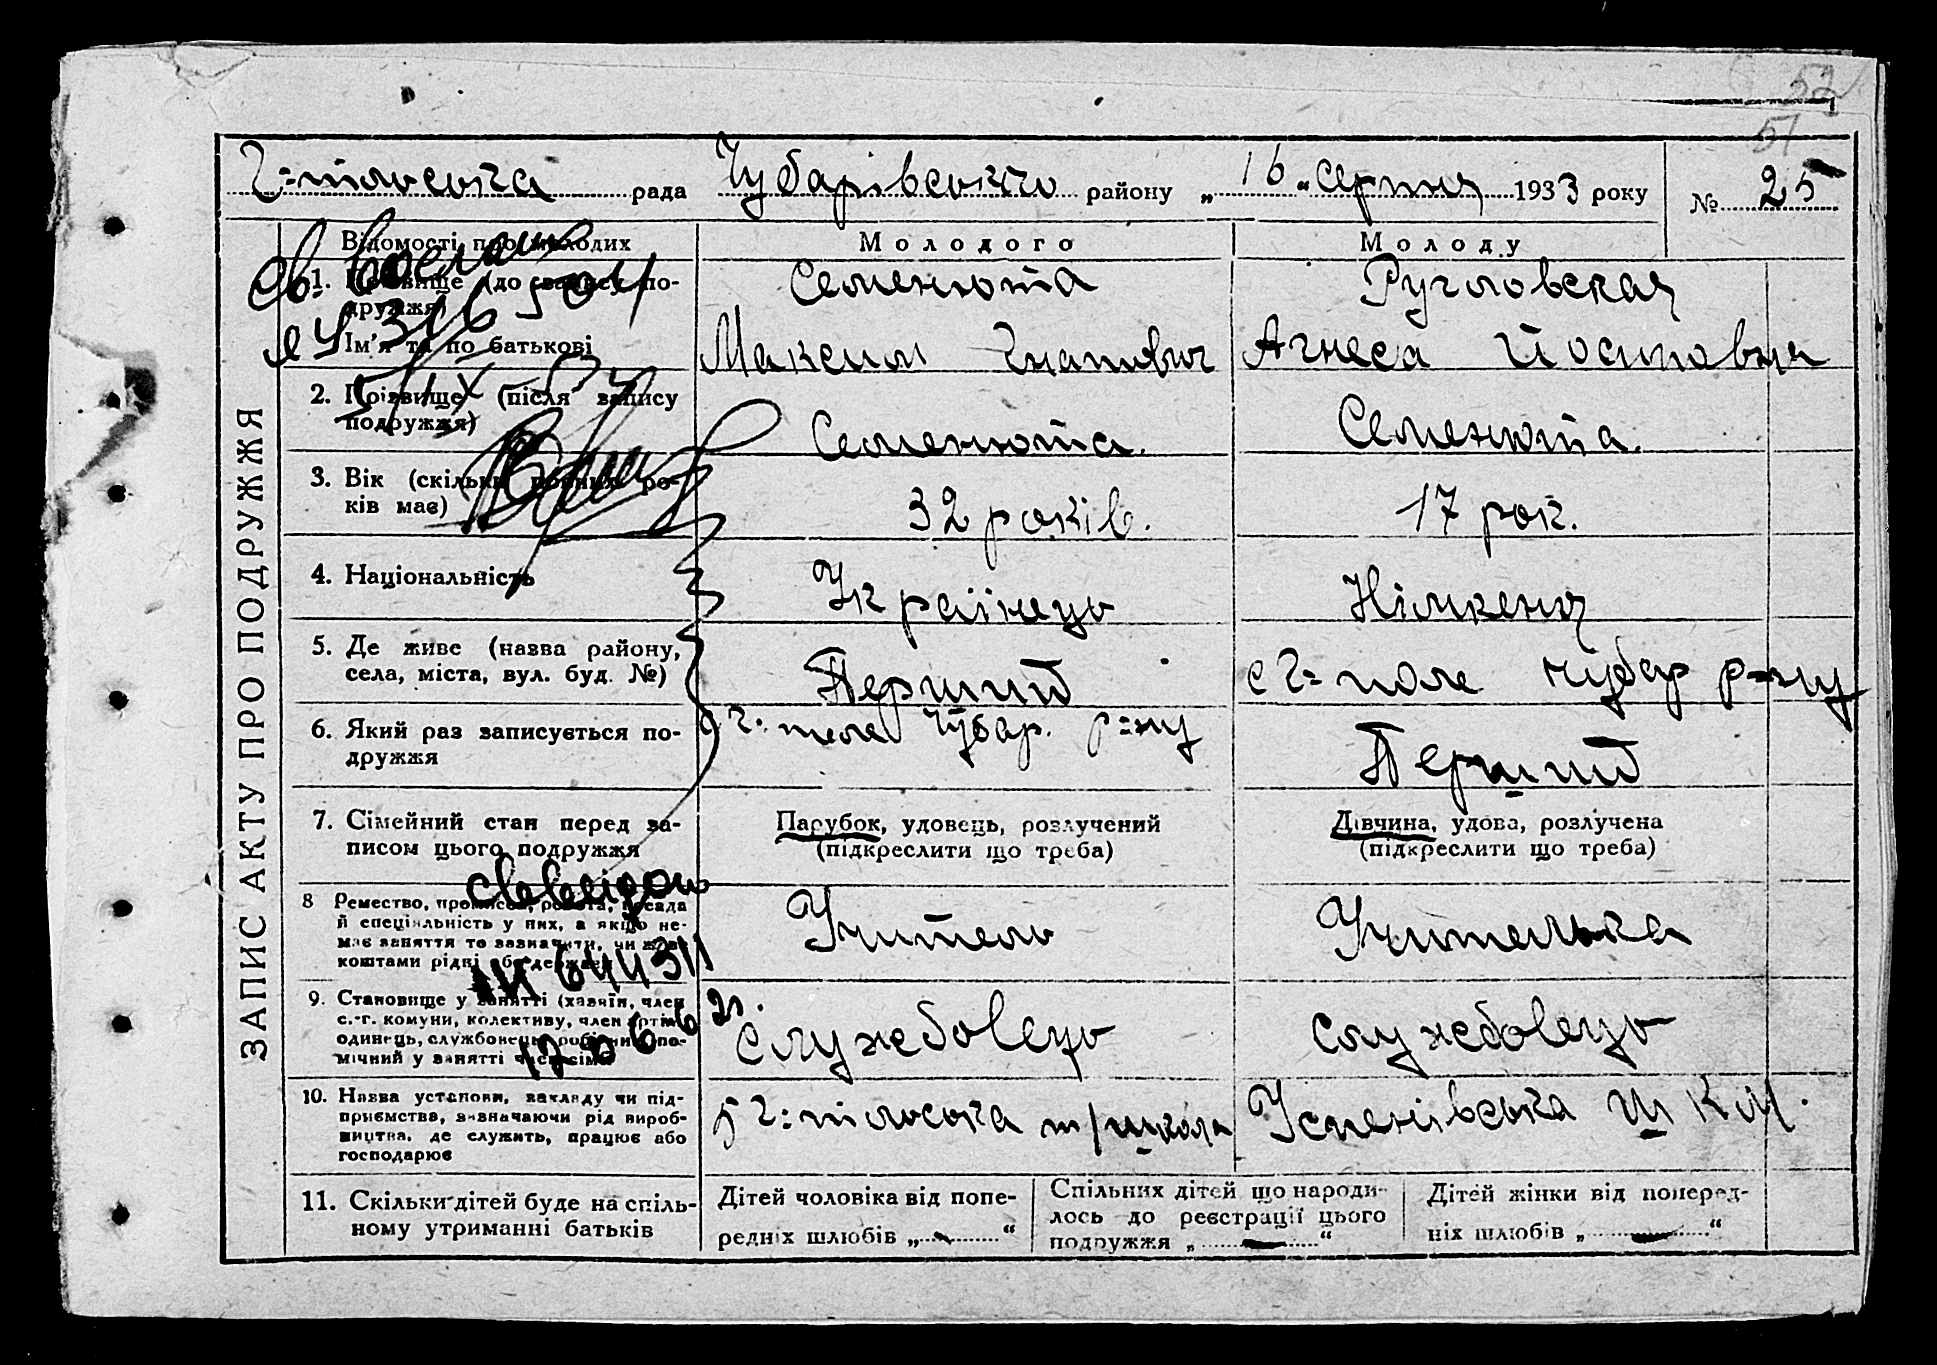 52
51
Г=пільська рада Чубарівського району „ 16 “ серпня 1933 року № 25
Відомості про молодих
Молодого
Молоду
1. Прізвище (до запису по-
дружжя)
Семенюта
Ім’я та по батькові
Максим Гнатович
Агнеса Йосиповна
2. Прізвище (після запису
подружжя)
Семенюта.
Семенюта.
3. Вік (скільки повних ро-
ків має)
32 років.
17 рок.
4. Національність
Українець
Німкеня
5. Де живе (назва району,
села, міста, вул. буд. №)
Перший
с Г=поле Чубар р=ну
6. Який раз записується по-
дружжя
Г. поле Чубар. р=ну
Перший
7. Сімейний стан перед за-
писом цього подружжя
Парубок, удовець, розлучений
(підкреслити що треба)
Дівчина, удова, розлучена
(підкреслити що треба)
8 Ремество, промисел, робота, посада
й спеціяльність у них, а якщо не-
має заняття то зазначити, чи живе
коштами рідні або держави
Учитель
Учителька
9. Становище у занятті (хазяїн, член
с.-г. комуни, колективу, член артіли
одинець, службовець, робітник, по-
мічний у занятті член сім’ї
Службовець
службовець
10. Назва установи, закладу чи під-
приємства, зазначаючи рід вироб-
ництва, де служить, працює або
господарює
Г=пільська т/школа
Успенівська ШКМ.
11. Скільки дітей буде на спіль-
ному утриманні батьків
Дітей чоловіка від попе-
редніх шлюбів „ “
Спільних дітей що народи-
лось до реєстрації цього
подружжя „ “
Дітей жінки від поперед-
ніх шлюбів „ “
ЗАПИС АКТУ ПРО ПОДРУЖЖЯ
316504
644311